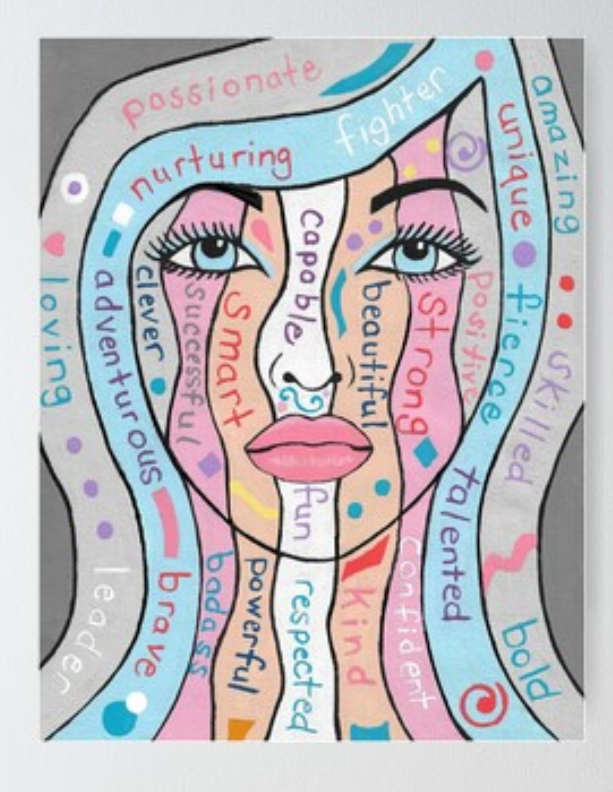 passionate
fighter
nurturing
amazing
unique
capable
loving
adventurous
clever
successful
smart
beautiful
strong
positive
fierce
skilled
fun
talented
leader
brave
badass
powerful
respected
kind
confident
bold